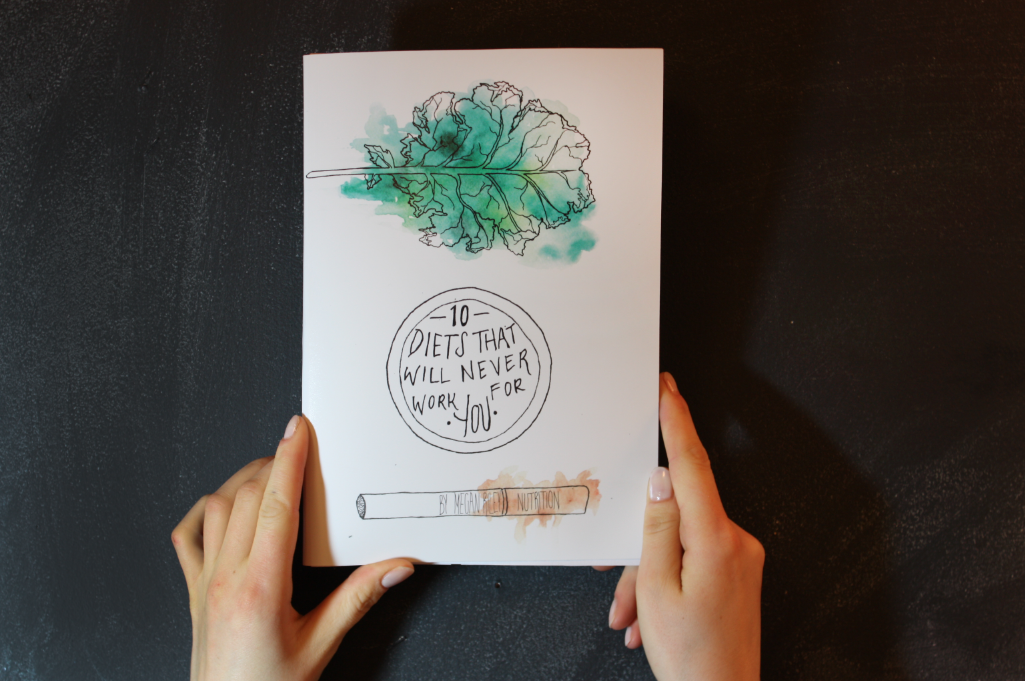 — 10 —
DIETS THAT
WILL NEVER
WORK FOR
• YOU •
BY MEGAN NUTRITION